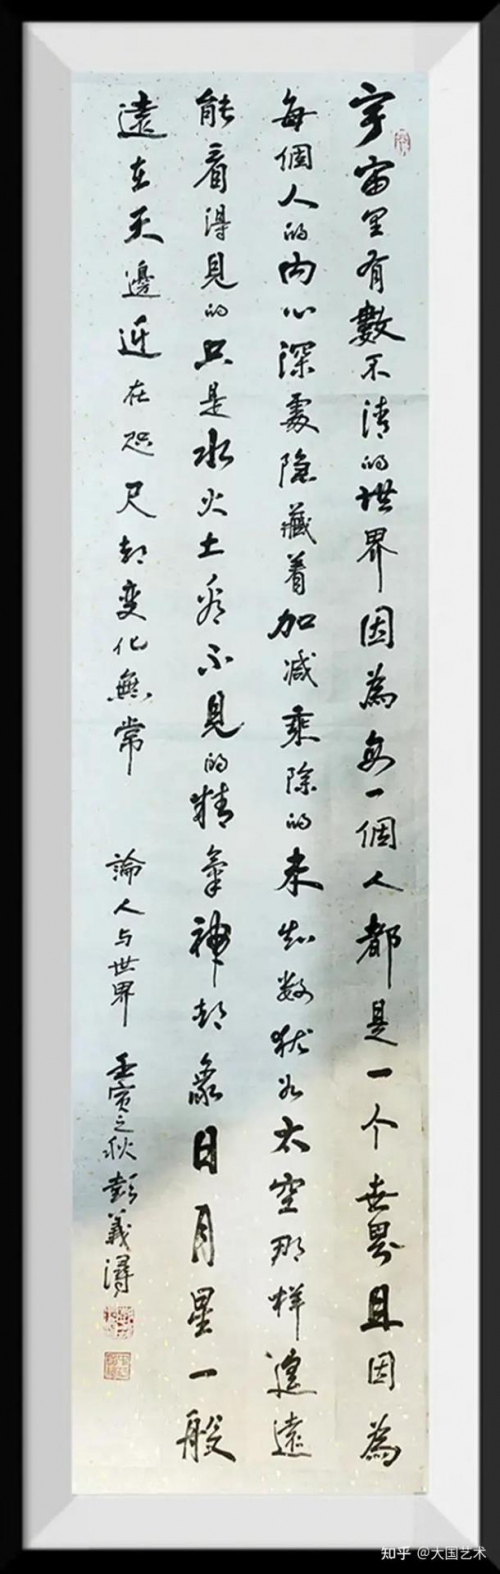 宇宙里有數不清的世界因為每一個人都是一个世界且因為
每個人的内心深處隐藏着加減乘除的未知数犹如太空那样遥遠
能看得見的只是水火土看不見的精氣神却象日月星一般
遠在天邊近在咫尺却變化無常
論人与世界 壬寅之秋 彭義潯
知乎 @大国艺术